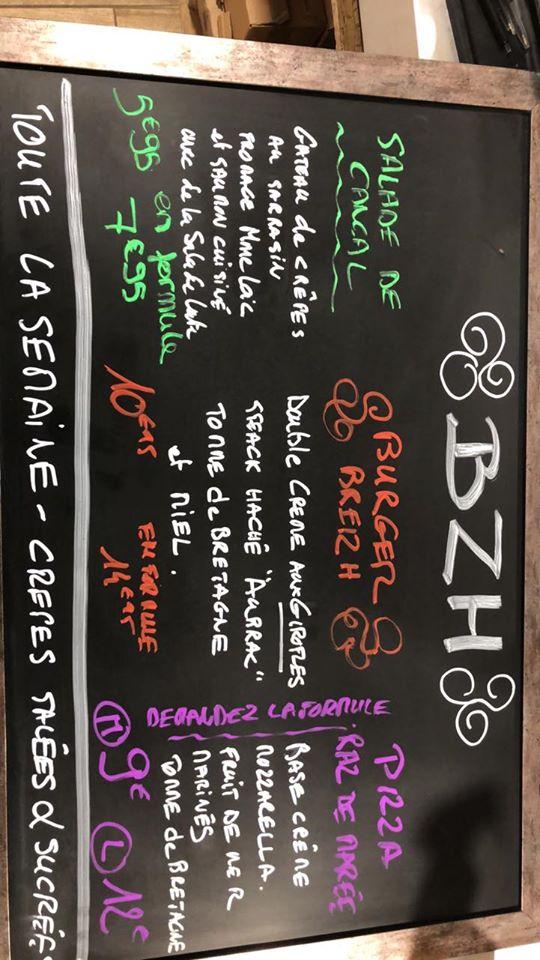 BZH
SALADE DE
CANCAL
GATEAU de CRÊPES
AU SARRASIN
FROMAGE
et SAUMON CUISINÉ
avec de la Salade
5€95 en formule
7€95
BURGER
BREIZH
Double CREME AUX GIROLLES
STEACK HACHÉ "AUBRAC"
TOMME de BRETAGNE
et MIEL.
10€95 EN FORMULE
14€95
PIZZA
RAZ DE MARÉE
DEMANDEZ LA FORMULE
BASE CRÊME
MOZZARELLA.
FRUIT DE MER
MARINÉS
TOMME de BRETAGNE
M 9€ L 12€
TOUTE LA SEMAINE - CREPES SALÉES & SUCRÉES